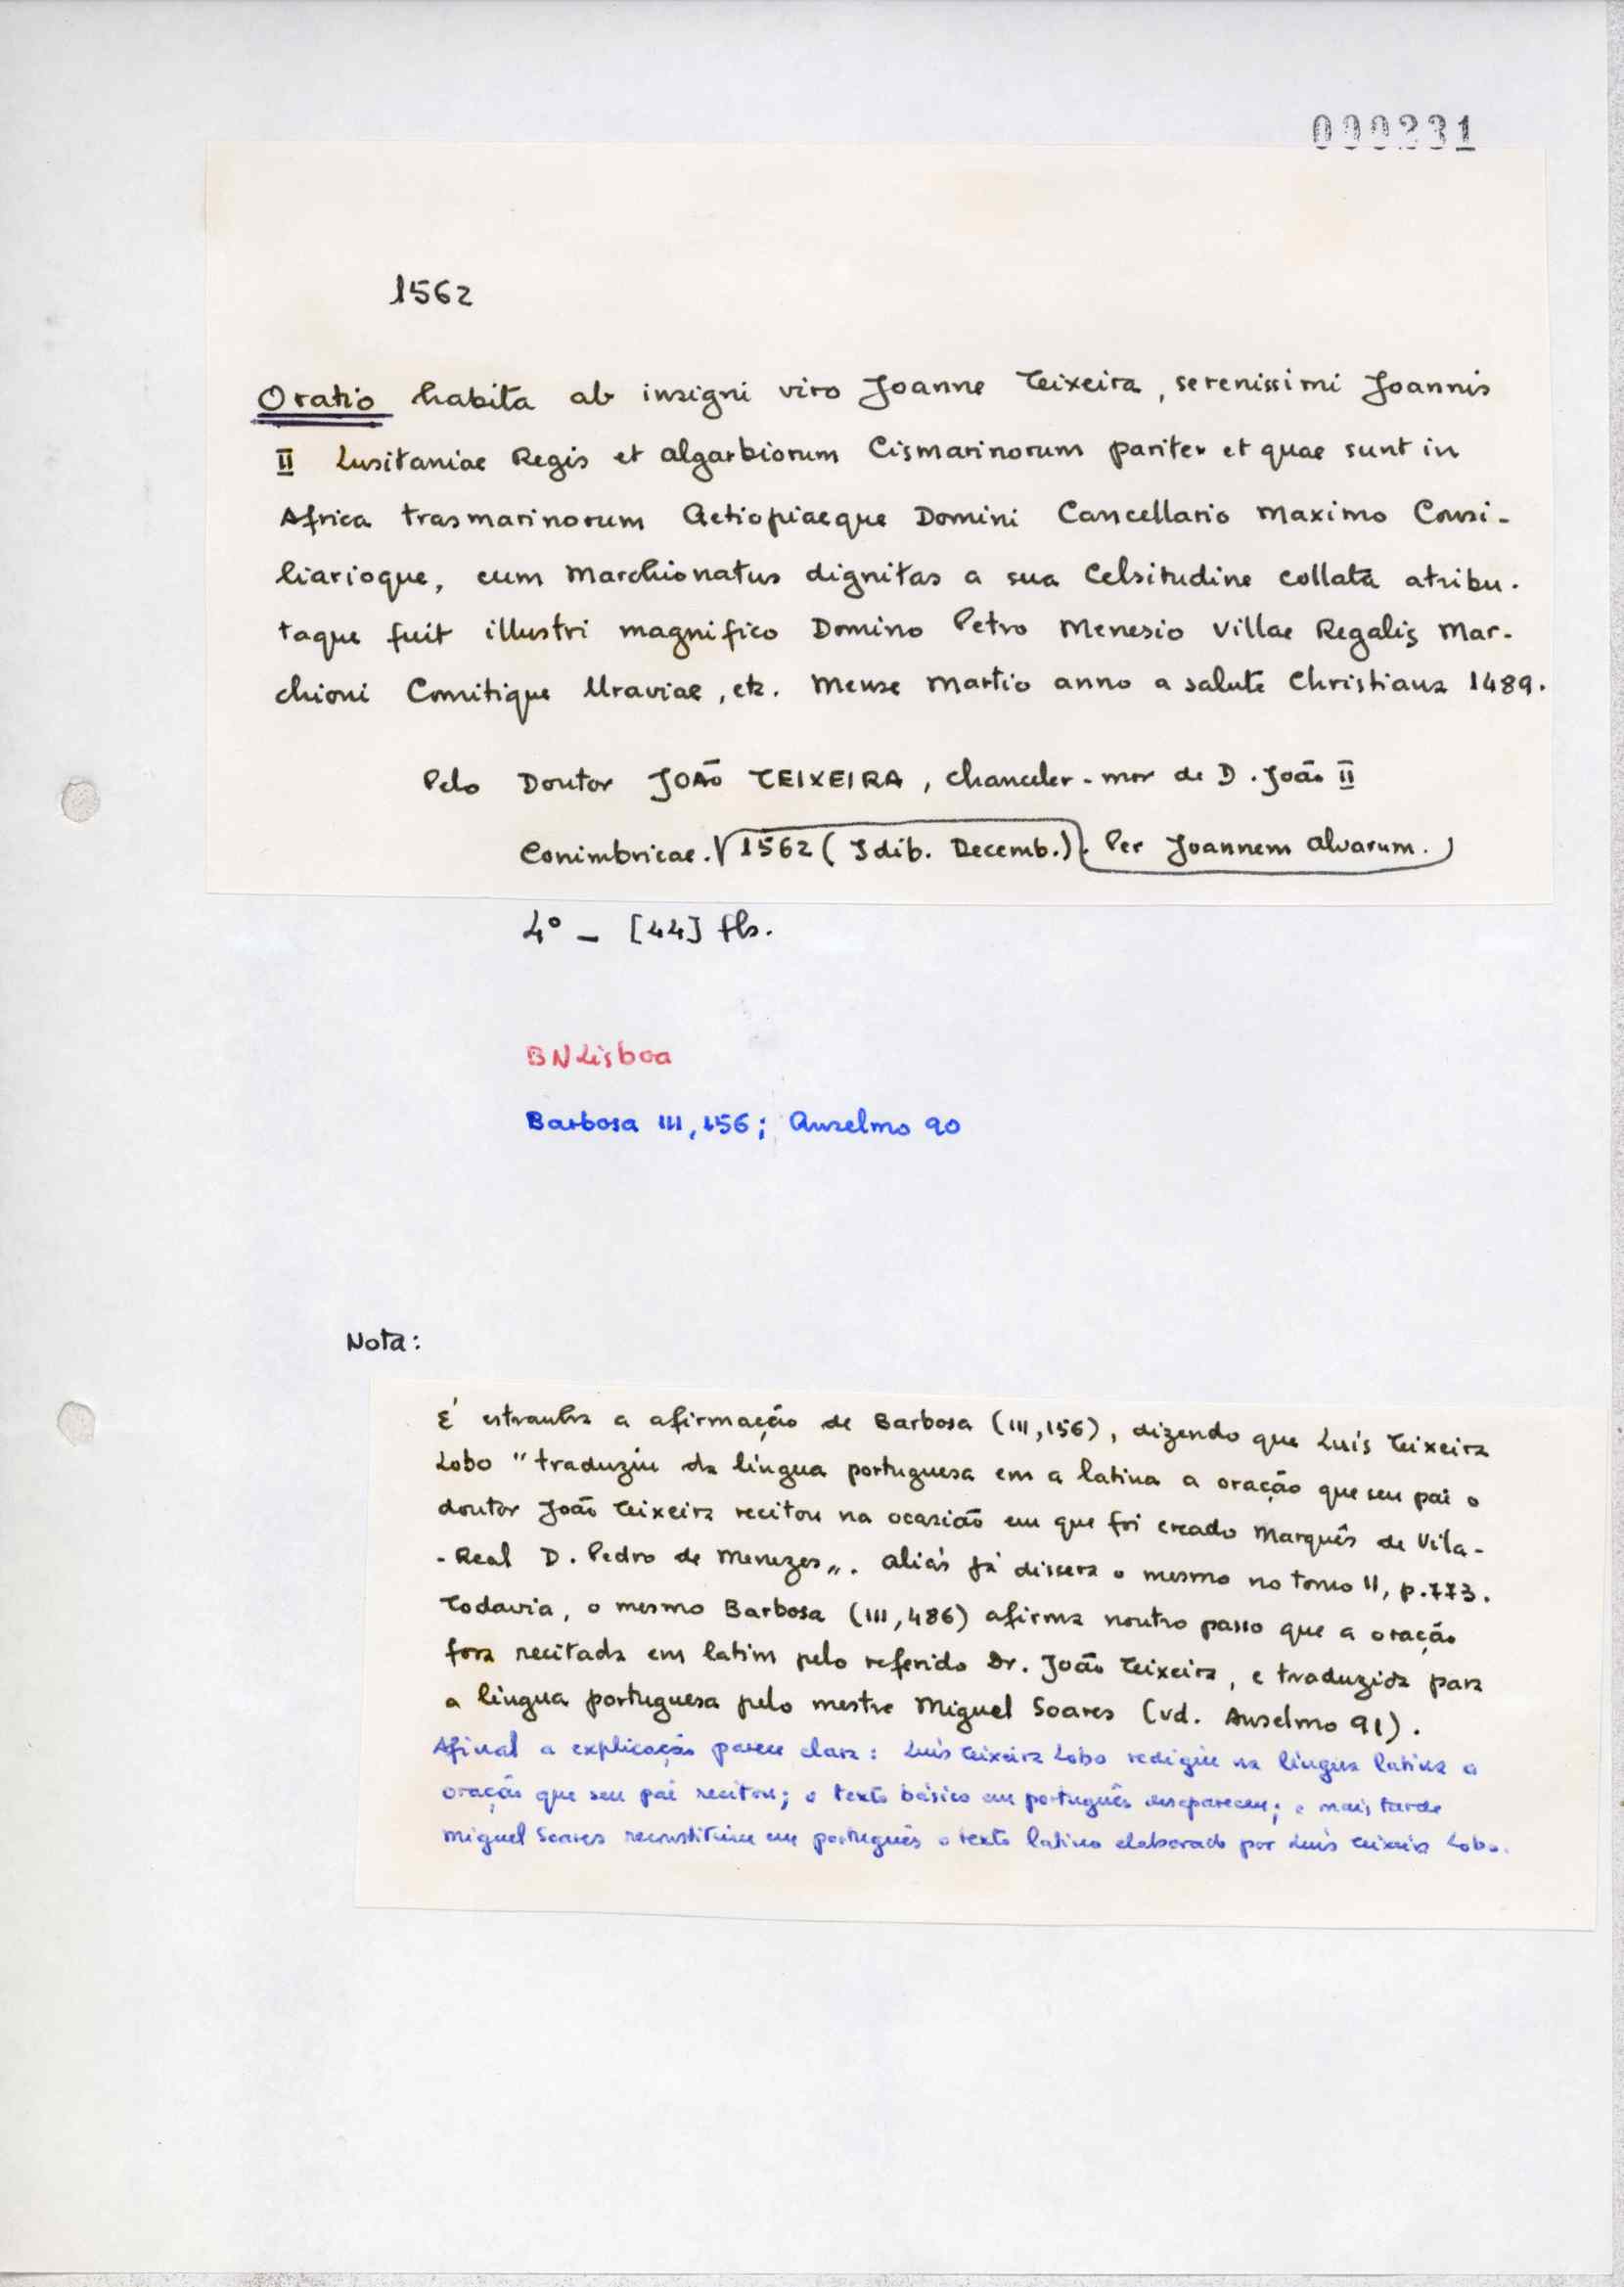 000231
1562
Oratio habita ab insigni viro Joanne Teixeira, serenissimi Joannis
II Lusitaniae Regis et algarbiorum Cismarinorum pariter et quae sunt in
Africa trasmarinorum Aetiopiaeque Domini Cancellario maximo Consi-
liarioque, cum Marchionatus dignitas a sua Celsitudine collata atribu-
taque fuit illustri magnifico Domino Petro Menesio Villae Regalis Mar-
chioni Comitique Uraviae, etc. Mense Martio anno a salute Christiana 1489.
Pelo Doutor JOÃO TEIXEIRA, chanceler-mor de D. João II
Conimbricae. 1562 (Idib. Decemb.). Per Joannem Alvarum.
4º - [44] fls.
BNLisboa
Barbosa III, 156; Anselmo 90
Nota:
É estranha a afirmação de Barbosa (III, 156), dizendo que Luís Teixeira
Lobo "traduziu da língua portuguesa em a latina a oração que seu pai o
doutor João Teixeira recitou na ocasião em que foi creado Marquês de Vila-
-Real D. Pedro de Menezes". Aliás já dissera o mesmo no tomo II, p.773.
Todavia, o mesmo Barbosa (III, 486) afirma noutro passo que a oração
fora recitada em latim pelo referido Dr. João Teixeira, e traduzida para
a língua portuguesa pelo mestre Miguel Soares (vd. Anselmo 91).
Afinal a explicação parece clara: Luís Teixeira Lobo redigiu na língua latina a
oração que seu pai recitou; o texto básico em português desapareceu; e mais tarde
Miguel Soares reconstituiu em português o texto latino elaborado por Luís Teixeira Lobo.